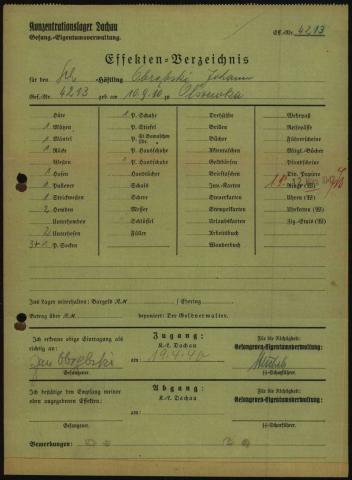 Konzentrationslager Dachau Eff.-Nr. 4213
Gefang.-Eigentumsverwaltung.
Effekten-Verzeichnis
für den Häftling Obrębski Johann
Gef.-Nr. 4213 geb. am 10.9.10 in
Hüte 1 P. Schuhe Dorhälfte Wehrpaß
1 Mützen P. Stiefel Brillen Reisepässe
1 Mäntel Bücher Führerscheine
1 Röcke P. Handschuhe Aktentaschen Mitgl.-Bücher
Westen 1 P. Handschuhe Geldbörsen Pfandscheine
1 Hosen Handtücher Brieftaschen Div. Papiere
1 Pullover Schals Inv.-Karten Ringe (W)
1 Strickwesten Schere Steuerkarten Uhren (W)
2 Hemden Messer Stempelkarten Uhrketten (W)
Unterhemden Schlüssel Urlaubskarten Zig.-Etuis (W)
2 Unterhosen Füller Arbeitsbuch
3+1 P. Socken Wanderbuch
Ins Lager miterhalten: Bargeld RM Ehering
Betrag über RM deponiert: Der Geldverwalter.
Ich erkenne obige Eintragung als richtig an: Zugang: Für die Richtigkeit:
K.-L. Dachau Gefangenen-Eigentumsverwaltung:
Jan Obrębski am 19.4.40
Gefangener. ᛋᛋ-Scharführer.
Ich bestätige den Empfang meiner Abgang: Für die Richtigkeit:
oben angegebenen Effekten: K.-L. Dachau Gefangenen-Eigentumsverwaltung:
am
Gefangener. ᛋᛋ-Scharführer.
Bemerkungen: